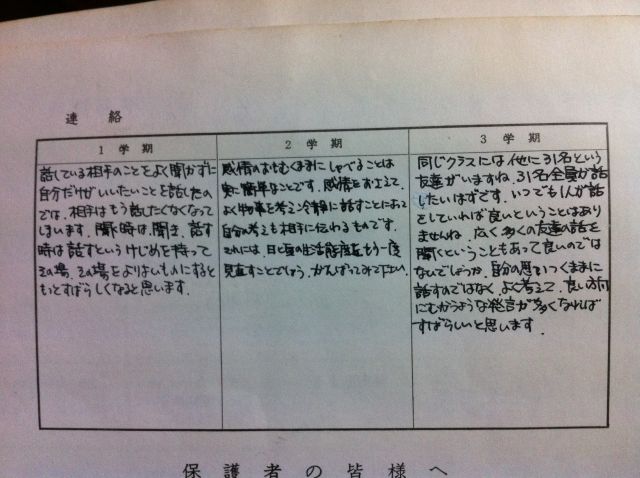 連絡
1学期
話している相手のことをよく聞かずに
自分だけがいいたいことを話したの
では、相手はもう話したくなくなって
しまいます。聞く時は、聞き、話す
時は話すというけじめを持って
その場、その場をよりよいものにすると
もっとすばらしくなると思います。
2学期
感情のおもむくままにしゃべることは
実に簡単なことです。感情をおさえて、
よく物事を考え冷静に話すことによって
自分の考えも相手に伝わるものです。
それには、日々の生活態度をもう一度
見直すことでしょう。がんばってみて下さい。
3学期
同じクラスには他に31名という
友達がいますね。31名全員が話
したいはずです。いつでも1人が話
をしていれば良いということはあり
ませんね。広く多くの友達の話を
聞くということもあって良いのでは
ないでしょうか。自分の思いつくままに
話すのではなく、よく考えて、良い方向
にむかうような発言が多くなれば
すばらしいと思います。
保護者の皆様へ